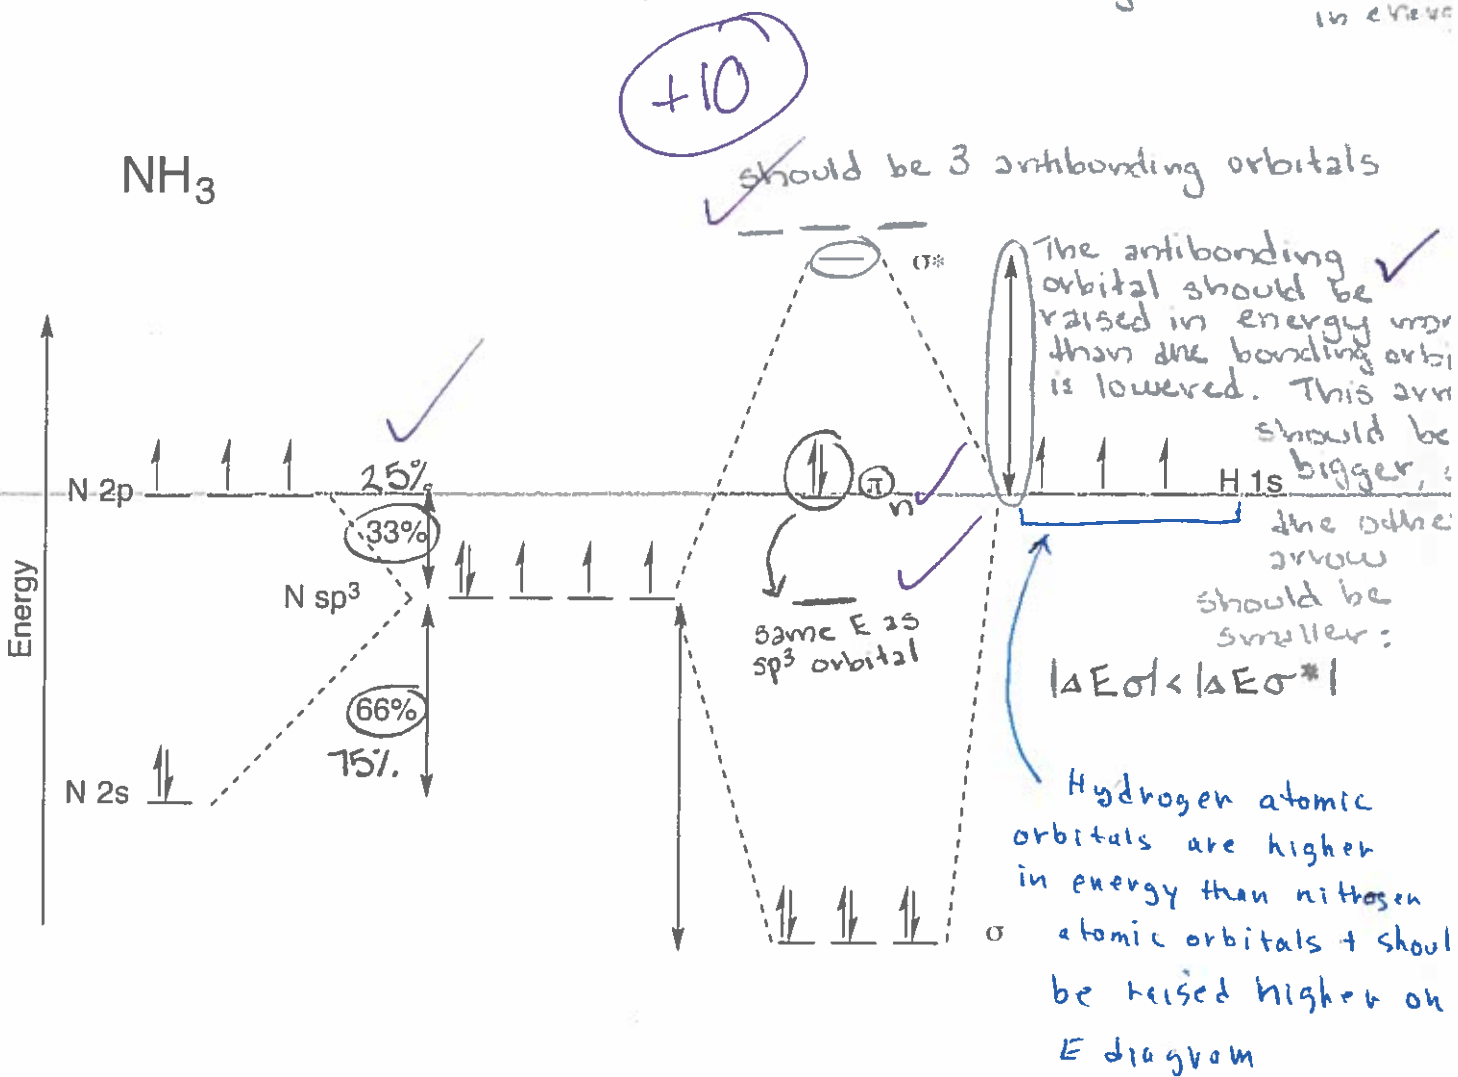 in
+10
NH3
should be 3 antibonding orbitals
σ*
The antibonding
orbital should be
raised in energy
than the bonding
is lowered. This
should be
bigger,
the
arrow
should be
smaller:
|ΔEσ|<|ΔEσ*|
N 2p
25%
33%
π
n
H 1s
N sp³
same E as
sp³ orbital
Energy
66%
75%.
N 2s
σ
Hydrogen atomic
orbitals are higher
in energy than nitrogen
atomic orbitals +
be raised higher on
E diagram